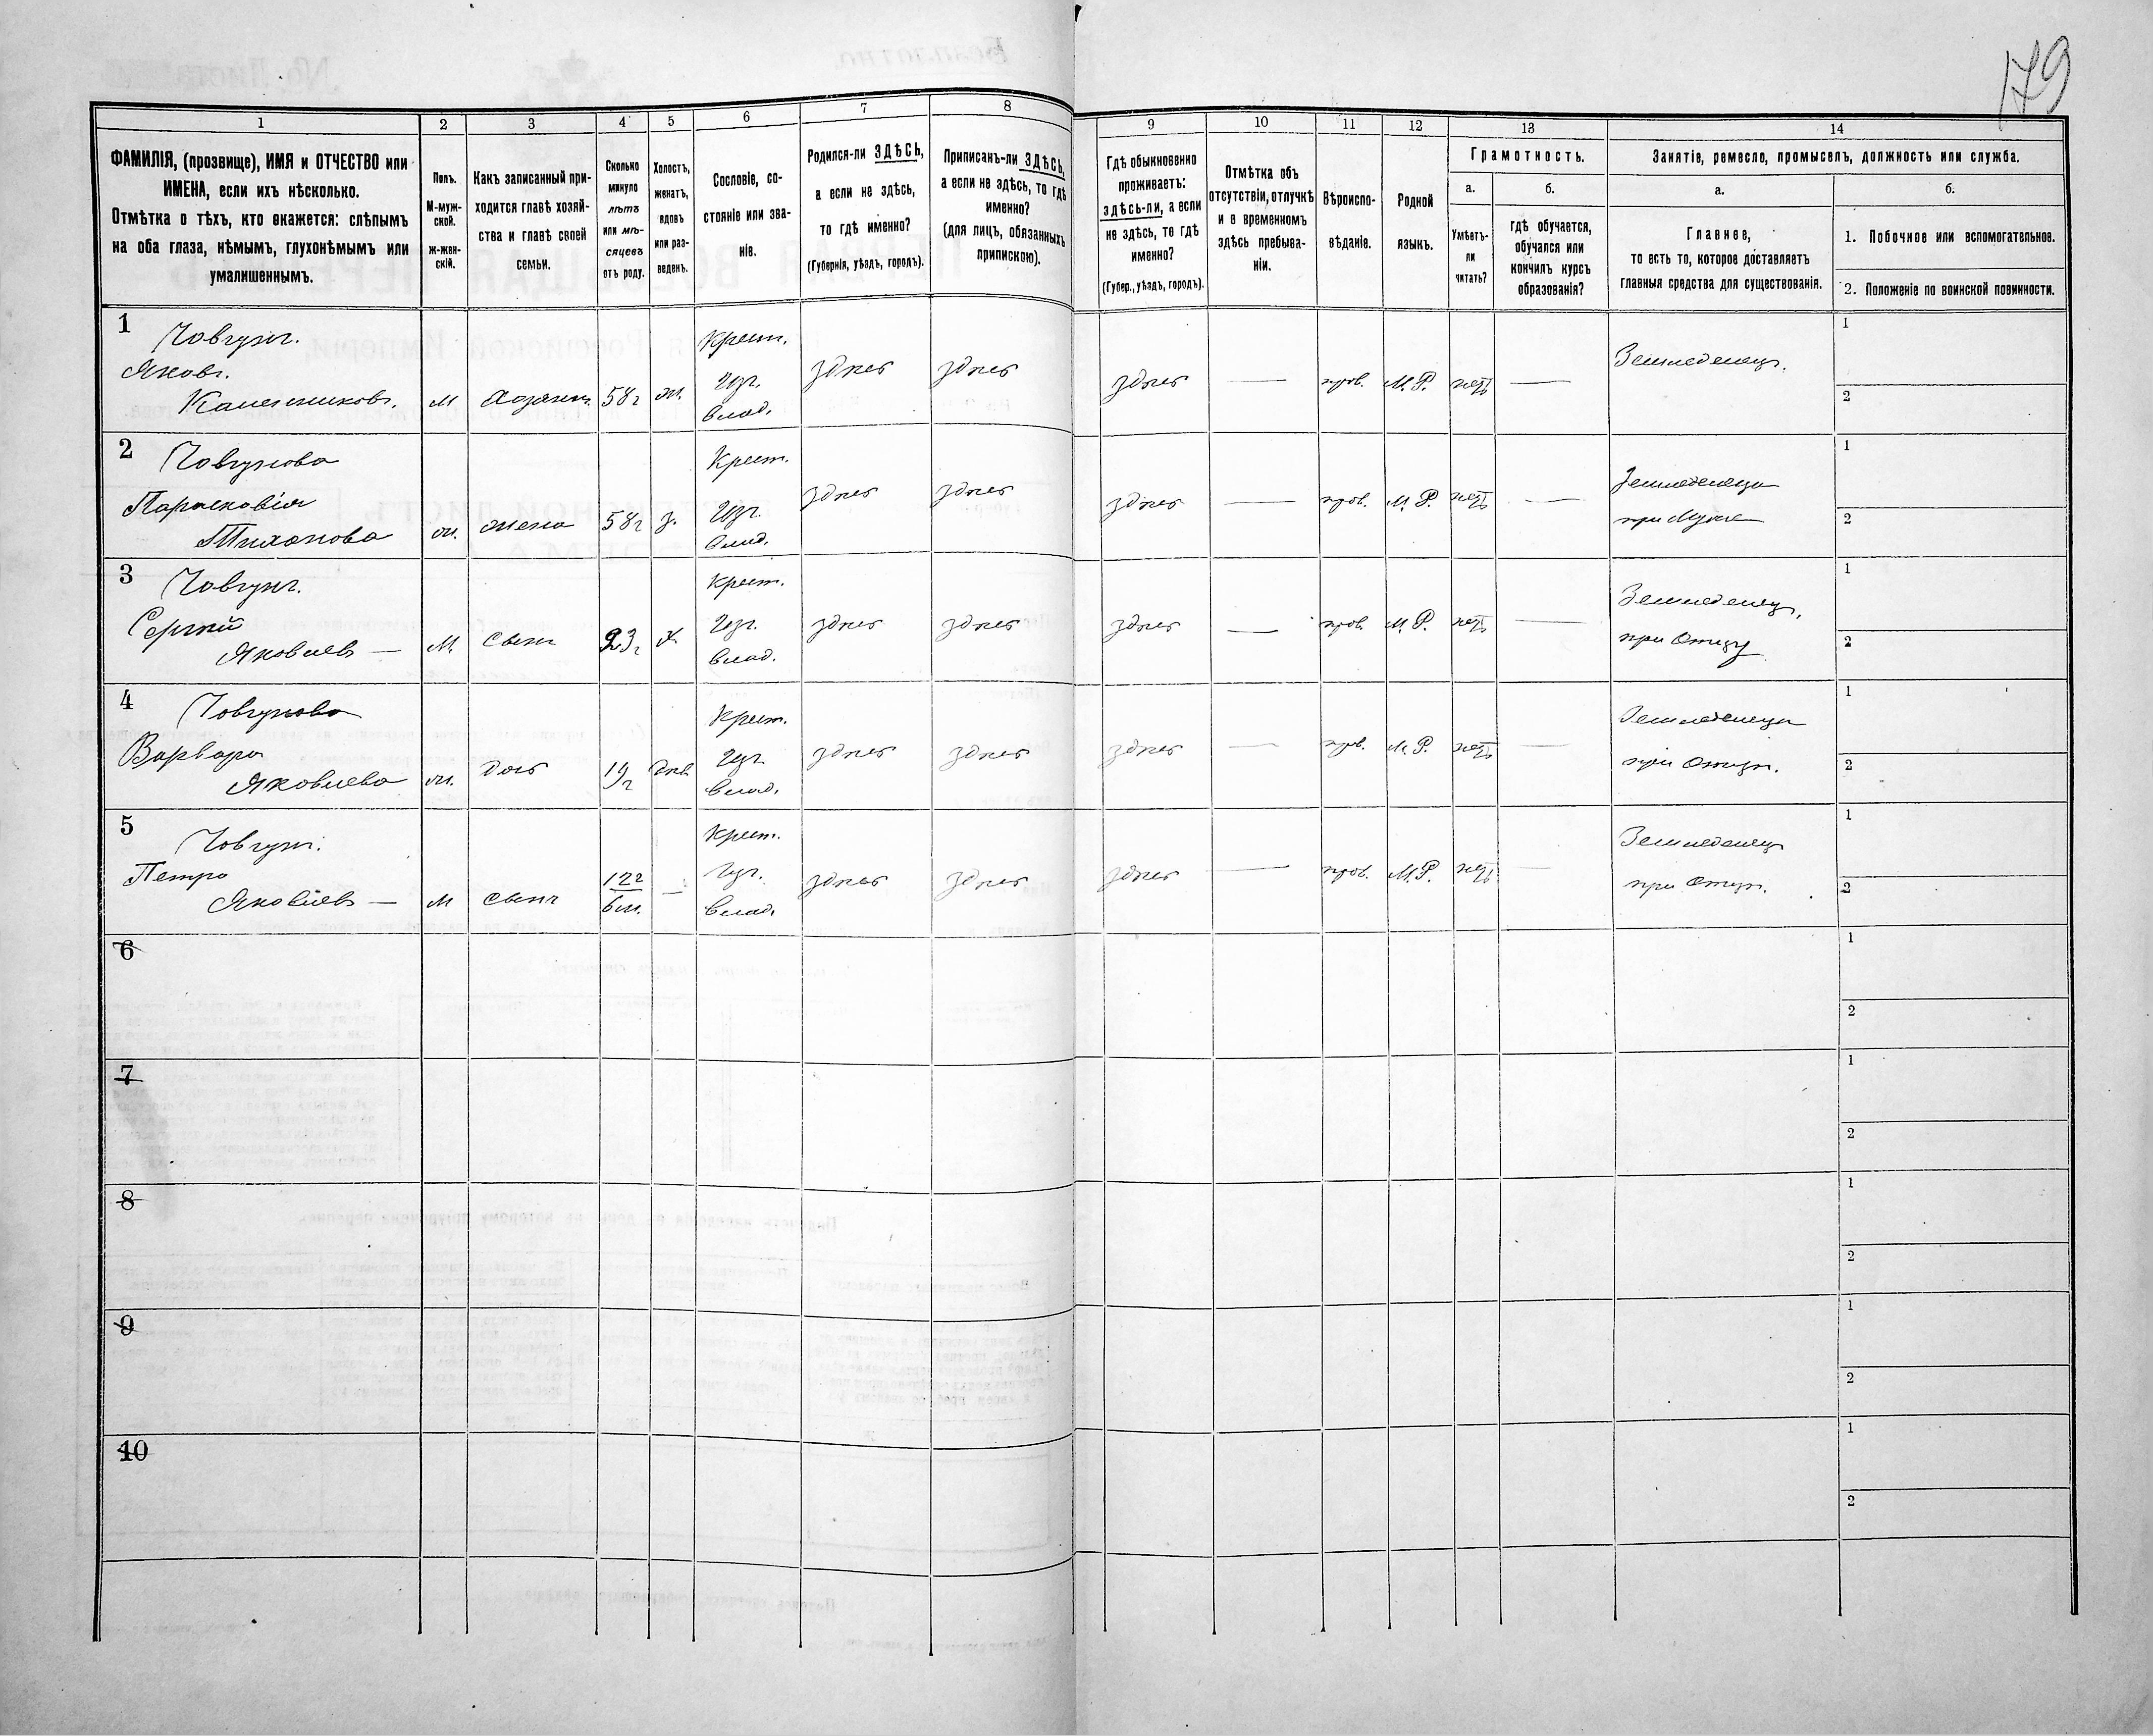 179
1
2
3
4
5
6
7
8
9
10
11
12
13
14
ФАМИЛІЯ, (прозвище), ИМЯ и ОТЧЕСТВО или
ИМЕНА, если ихъ нѣсколько.
Отмѣтка о тѣхъ, кто окажется: слѣпымъ
на оба глаза, нѣмымъ, глухонѣмымъ или
умалишеннымъ.
Полъ.
М-муж-
ской.
ж-жен-
скій.
Какъ записанный при-
ходится главѣ хозяй-
ства и главѣ своей
семьи.
Сколько
минуло
лѣтъ
или мѣ-
сяцевъ
отъ роду.
Холостъ,
женатъ,
вдовъ
или раз-
веденъ.
Сословіе, со-
стояніе или зва-
ніе.
Родился-ли ЗДѢСЬ,
а если не здѣсь,
то гдѣ именно?
(Губернія, уѣздъ, городъ).
Приписанъ-ли ЗДѢСЬ,
а если не здѣсь, то гдѣ
именно?
(для лицъ, обязанныхъ
припискою).
Гдѣ обыкновенно
проживаетъ:
здѣсь-ли, а если
не здѣсь, то гдѣ
именно?
(Губер., уѣздъ, городъ).
Отмѣтка объ
отсутствіи, отлучкѣ
и о временномъ
здѣсь пребыва-
ніи.
Вѣроиспо-
вѣданіе.
Родной
языкъ.
Грамотность.
а.
б.
Умѣетъ-
ли
читать?
гдѣ обучается,
обучался или
кончилъ курсъ
образованія?
Занятіе, ремесло, промыселъ, должность или служба.
а.
б.
Главное,
то есть то, которое доставляетъ
главныя средства для существованія.
1. Побочное или вспомогательное.
2. Положеніе по воинской повинности.
1
Човгунъ.
Яковъ.
м Хозяинъ 58 г ж. Крест. Изъ. влад. здѣсь здѣсь здѣсь — прав. М.Р. нетъ — Земледелец.
1
2
2
Човгунова
Парасковія
Тихонова ж. жена 58 г з. Крест. Изъ. влад. здѣсь здѣсь здѣсь — прав. М.Р. нетъ — Земледелец при Муже
1
2
3
Човгунъ.
Сергий
Яковлевъ — м. сынъ 23 г х Крест. Изъ. влад. здѣсь здѣсь здѣсь — прав. М.Р. нетъ — Земледелец. при Отцу
1
2
4
Човгунова
Варвара
Яковлева ж. дочь 19 г Крест. Изъ влад. здѣсь здѣсь здѣсь — прав. М.Р. нетъ — Земледелец при Отцу.
1
2
5
Човгунъ.
Петро
Яковлевъ — м сынъ 12 г 6 м. — Крест. Изъ. влад. здѣсь здѣсь здѣсь — прав. М.Р. нетъ — Земледелец при Отцу.
1
2
6
1
2
7
1
2
8
1
2
9
1
2
10
1
2